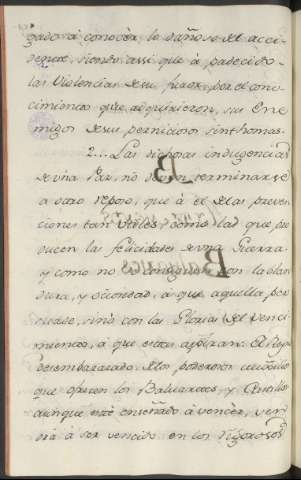 gado á conocér, lo dañoso del acci-
siendo assi que á padecido
las Violencias desu furor, por el cono-
cimiento que adquirieron, sus Ene-
migos desu pernicioso sinthomas.
2... Las dichosas indigencias
deuna Paz, no deven terminarse
a otro reposo, que á el de las preven-
ciones tan Utiles como las que pro-
ducen las felicidades deuna Guerra
y como no con la blan-
dura, y ociosidad, á que aquella per-
suade, sino con las Glorias del Venci-
miento, á que estas aspiran. El Rey
desembarazado delos poderosos
que ofrecen los Baluartes, y Castillos
aunque esté enseñado á vencér, ven-
drá á sér vencido en los rigorosos